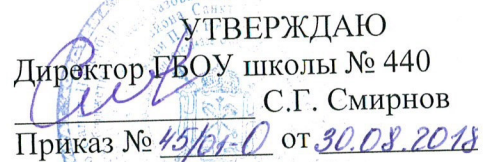 УТВЕРЖДАЮ
Директор ГБОУ школы № 440
С.Г. Смирнов
Приказ № 45/01-О от 30.08.2018